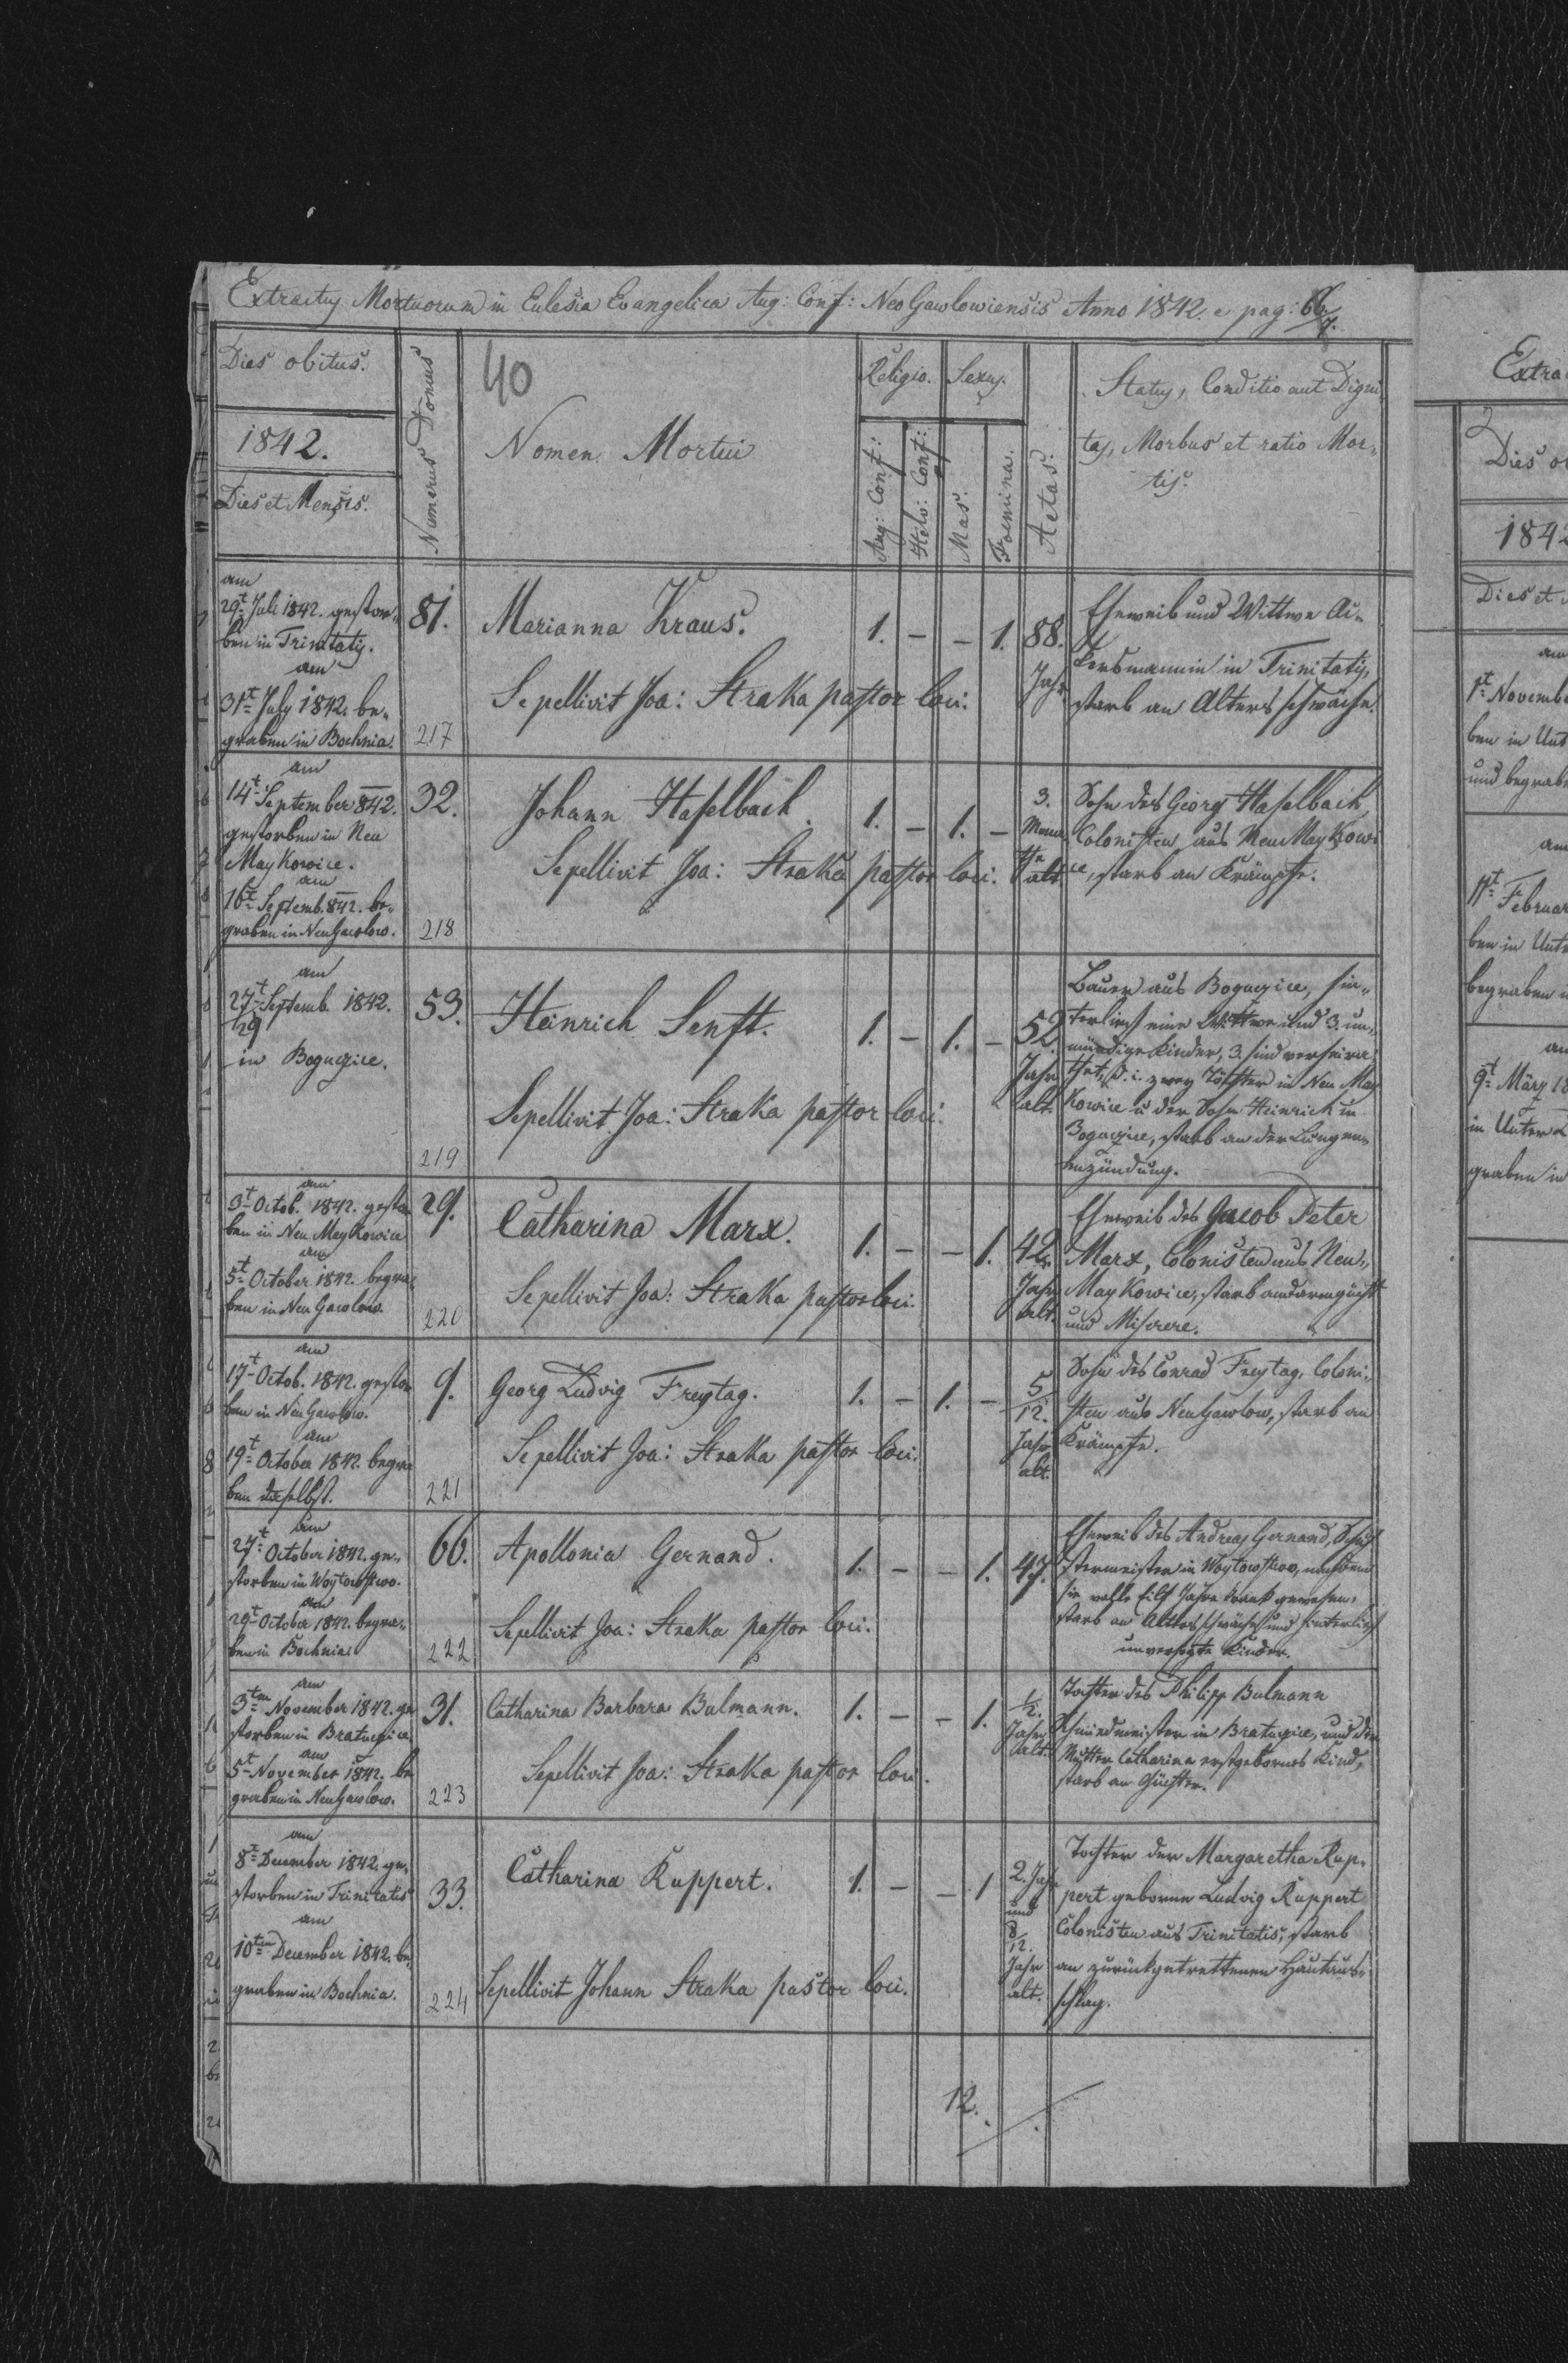 Extractus Mortuorum in Eclesia Evangelica Aug: Conf: NeoGawlowiensis Anno 1842. e pag: 66/7.
Dies obitus.
1842.
Dies et Mensis.
Numerus Domus
40
Nomen Mortui
Religio.
Aug: Conf:
Helv: Conf:
Sexus.
Mas.
Foemina.
Aetas.
Status, Conditio aut Digni-
tas, Morbus et ratio Mor-
tis.
am
29t Juli 1842. gestor-
ben in Trinitatis.
am
31t July 1842. be-
graben in Bochnia.
81.
217
Marianna Kraus.
Sepellivit Joa: Straka pastor loci.
1. – – 1.
88.
Jahr
Eheweib und Wittwe Ac-
kersmannin in Trinitatis,
starb an Altersschwäche.
am
14t September 842.
gestorben in Neu
Maykowice.
am
16t Septemb. 842. be-
graben in NeuGawlow.
32.
218
Johann Haselbach.
Sepellivit Joa: Straka pastor loci.
1. – 1. –
3.
alt
Sohn des Georg Haselbach,
Colonisten aus Neu Maykowi-
ce, starb an Krämpfe.
am
27t Septemb. 1842.
29
in Bogucice.
53.
219
Heinrich Senft.
Sepellivit Joa: Straka pastor loci.
1. – 1. –
52.
Jahr
alt.
Bauer aus Bogucice, hin-
terliess eine Wittwe und 3. un-
mündige Kinder, 3. sind verheira-
thet, d. i. zwey Töchter in Neu May
kowice u der Sohn Heinrich in
Bogucice, starb an der Lungen-
entzündung.
am
3t Octob. 1842. gestor
ben in Neu Maykowice
am
5t October 1842. begra-
ben in Neu Gawlow.
29.
220
Catharina Marx.
Sepellivit Joa: Straka pastor loci.
1. – – 1.
42.
Jahr
alt.
Eheweib des Jacob Peter
Marx, Colonisten aus Neu-
Maykowice, starb an
und Miserere.
am
17t Octob. 1842. gestor
ben in NeuGawlow.
am
19t October 1842. begra
ben daselbst.
9.
221
Georg Ludvig Freytag.
Sepellivit Joa: Straka pastor loci.
1. – 1. –
5/12.
Jahr
alt.
Sohn des Conrad Freytag, Coloni-
sten aus NeuGawlow, starb an
Krämpfe.
am
27t October 1842. ge-
storben in Woytowstwo.
am
29t October 1842. begra-
ben in Bochnia.
66.
222
Apollonia Gernand.
Sepellivit Joa: Straka pastor loci.
1. – – 1.
47.
Eheweib des Andreas Gernand, Schu-
stermeister in Woytowstwo, nachdem
sie volle eilf Jahre krank gewesen,
starb an Altersschwäche und hinterließ
unversorgte Kinder.
am
3ten November 1842. ge
storben in Bratucice.
am
5t November 1842. be
graben in NeuGawlow.
31.
223
Catharina Barbara Bulmann.
Sepellivit Joa: Straka pastor loci.
1. – – 1.
1/2.
Jahr
alt.
Tochter des Philipp Bulmann
Schmiedmeister in Bratucice, und der
Mutter Catharina erstgebornes Kind,
starb an
am
8t December 1842. ge-
storben in Trinitatis
am
10ten December 1842. be-
graben in Bochnia.
33.
224
Catharina Ruppert.
Sepellivit Johann Straka pastor loci.
1. – – 1
2. Jahr
und
8/12.
Jahr
alt.
Tochter der Margaretha Rup-
pert geborene Ludvig Ruppert
Colonisten aus Trinitatis, starb
an zurückgetrettenem Hautaus-
schlag.
12.
Extra
Dies o
1842
Dies et
am
1t Novemb
ben in Unt
und begrab
am
11t Februar
ben in Unt
begraben
am
9t März 18
in Unter
graben in